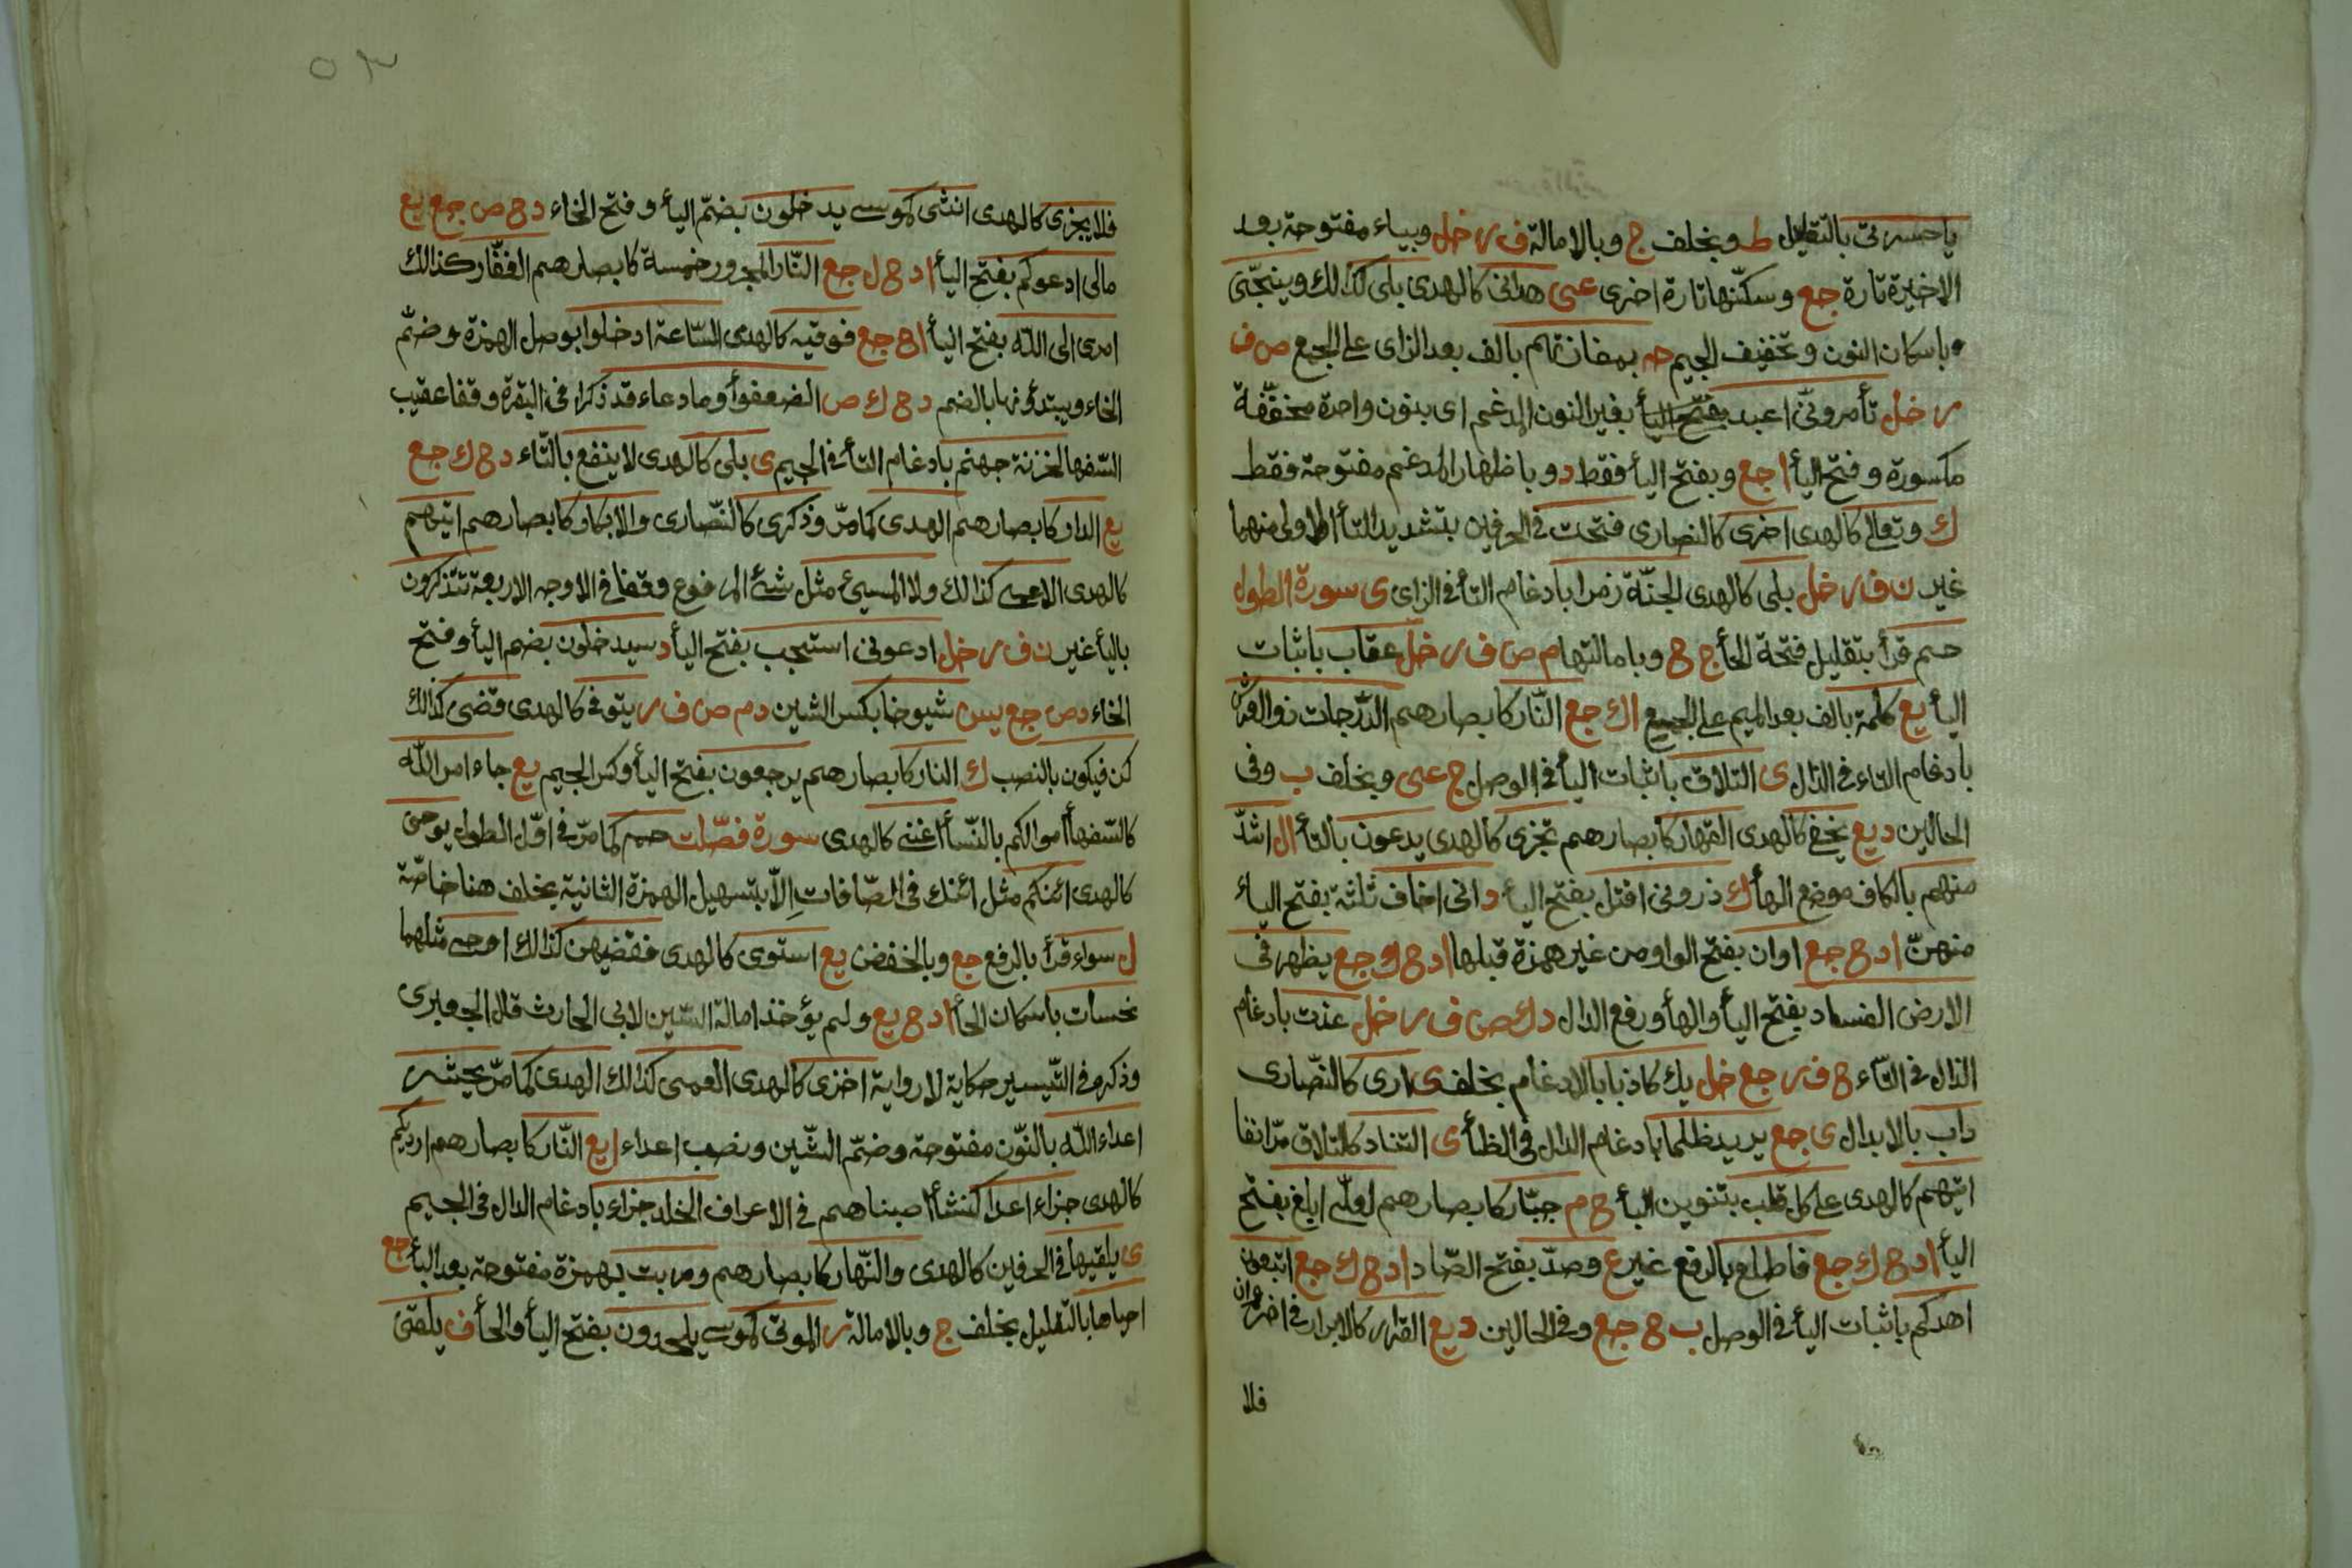 ياحسرتى بالتقليل ط وبخلف ج وبالامالة ف ر خل وبياء مفتوحة بعد
الاخيرة تارة جع وسكنها تارة اخرى عى هدانى كالهدى بلى كذالك وينجى
باسكان النون وتخفيف الجيم حه بمفازتهم بالف بعد الزاى على الجمع ص ف
ر خل تأمرونى اعبد بفتح اليأ بغير النون المدغم اى بنون واحدة مخففة
مكسورة وفتح اليأ ا جع وبفتح اليأ فقط د وباظهار المدغم مفتوحة فقط
ك وتعالى كالهدى اخرى كالنصارى فتحت فى الحرفين بتشديد التأ الاولى منهما
غير ن ف ر خل بلى كالهدى الجنة زمرا بادغام التأ فى الزاى ى سورة الطول
حم قرأ بتقليل فتحة الحأ ج ح وبامالتها م ص ف ر خل عقاب باثبات
اليأ يع كلمة بالف بعد الميم على الجمع ا ك جع النار كابصارهم الدرجات ذو العرش
بادغام التاء فى الذال ى التلاق باثبات اليأ فى الوصل ج عى وبخلف ب وفى
الحالين د يع يخفى كالهدى القهار كابصارهم تجزى كالهدى يدعون بالتأ ا ل اشد
منهم بالكاف موضع الهأ ك ذرونى اقتل بفتح اليأ د انى اخاف ثلثة بفتح الياء
منهن ا د ح جع اوان بفتح الواو من غير همزة قبلها ا د ح ك جع يظهر فى
الارض الفساد بفتح اليأ والهأ ورفع الدال د ك ص ف ر خل عذت بادغام
الذال فى التاء ح ف ر جع خل يك كاذبا بالادغام بخلف ى ارى كالنصارى
داب بالابدال ى جع يريد ظلما بادغام الدال فى الظأ ى التناد كالتلاق مر انفا
اتيهم كالهدى على كل قلب بتنوين البأ ح م جبار كابصارهم لعلى ابلغ بفتح
اليأ ا د ح ك جع فاطلع بالرفع غير ع وصد بفتح الصاد ا د ح ك جع اتبعون
اهدكم باثبات اليأ فى الوصل ب ح جع وفى الحالين د يع القرار كالابرار فى اخر عمران
فلا
فلا يجزى كالهدى انثى كموسى يدخلون بضم اليأ وفتح الخاء د ح ص جع يع
مالى ادعوكم بفتح اليأ ا د ح ل جع النار المجرور خمسة كابصارهم الغفار كذالك
امرى الى الله بفتح اليأ ا ح جع فوقيه كالهدى الساعة ادخلوا بوصل الهمزة وضم
الخاء ويبتدؤنها بالضم د ح ك ص الضعفؤا وما دعاء قد ذكرا فى البقرة وقفا عقيب
السفها لخزنة جهنم بادغام التأ فى الجيم ى بلى كالهدى لا ينفع بالتاء د ح ك جع
يع الدار كابصارهم الهدى كما مر وذكرى كالنصارى والابكار كابصارهم اتيهم
كالهدى الاعمى كذالك ولا المسيئ مثل شئ المرفوع وقفا فى الاوجه الاربعة تتذكرون
باليأ غير ن ف ر خل ادعونى استجب بفتح اليأ د سيدخلون بضم اليأ وفتح
الخاء د ص جع يس شيوخا بكسر الشين د م ص ف ر يتوفى كالهدى قضى كذالك
كن فيكون بالنصب ك النار كابصارهم يرجعون بفتح اليأ وكسر الجيم يع جاء امر الله
كالسفهأ اموالكم بالنسأ اغنى كالهدى سورة فصلت حم كما مر فى اول الطول يوحى
كالهدى ائنكم مثل ائنك فى الصافات الا بتسهيل الهمزة الثانية بخلف هنا خاصة
ل سواء قرأ بالرفع جع وبالخفض يع استوى كالهدى فقضيهن كذالك اوحى مثلهما
نحسات باسكان الحأ ا د ح يع ولم يؤخذ امالة السين لابى الحارث قال الجعبرى
وذكره فى التيسير حكاية لا رواية اخزى كالهدى العمى كذالك الهدى كما مر يحشر
اعداء الله بالنون مفتوحة وضم الشين ونصب اعداء ا يع النار كابصارهم ارديكم
كالهدى جزاء اعدا كنشأ اصبناهم فى الاعراف الخلد جزاء بادغام الدال فى الجيم
ى يلقيها فى الحرفين كالهدى والنهار كابصارهم وربت بهمزة مفتوحة بعد البأ جع
احياها بالتقليل بخلف ج وبالامالة ر الموتى كموسى يلحدون بفتح اليأ والحأ ف يلقى